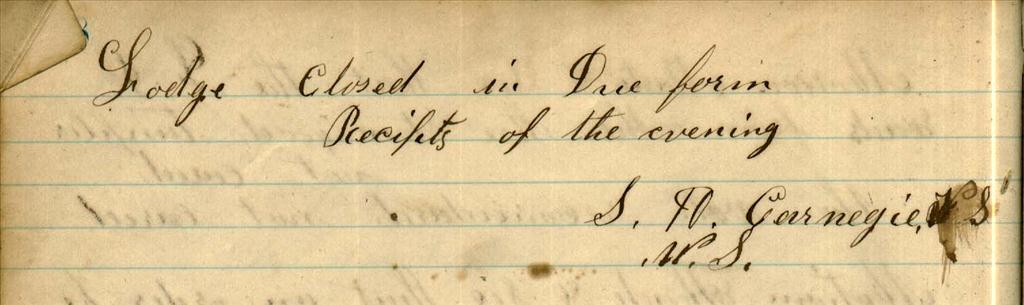 Lodge Closed in Due form
Receipts of the evening
S. H. Carnegie, W S
W. S.